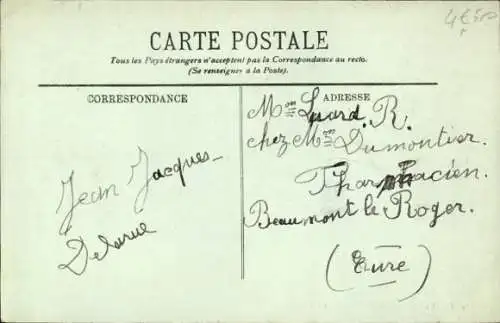 4€50
CARTE POSTALE
Tous les Pays étrangers n'acceptent pas la Correspondance au recto.
(Se renseigner à la Poste).
CORRESPONDANCE
Jean Jacques
Delarue
ADRESSE
Mon Luard. R.
chez Mr Dumontier.
Pharmacien.
Beaumont le Roger.
(Eure)